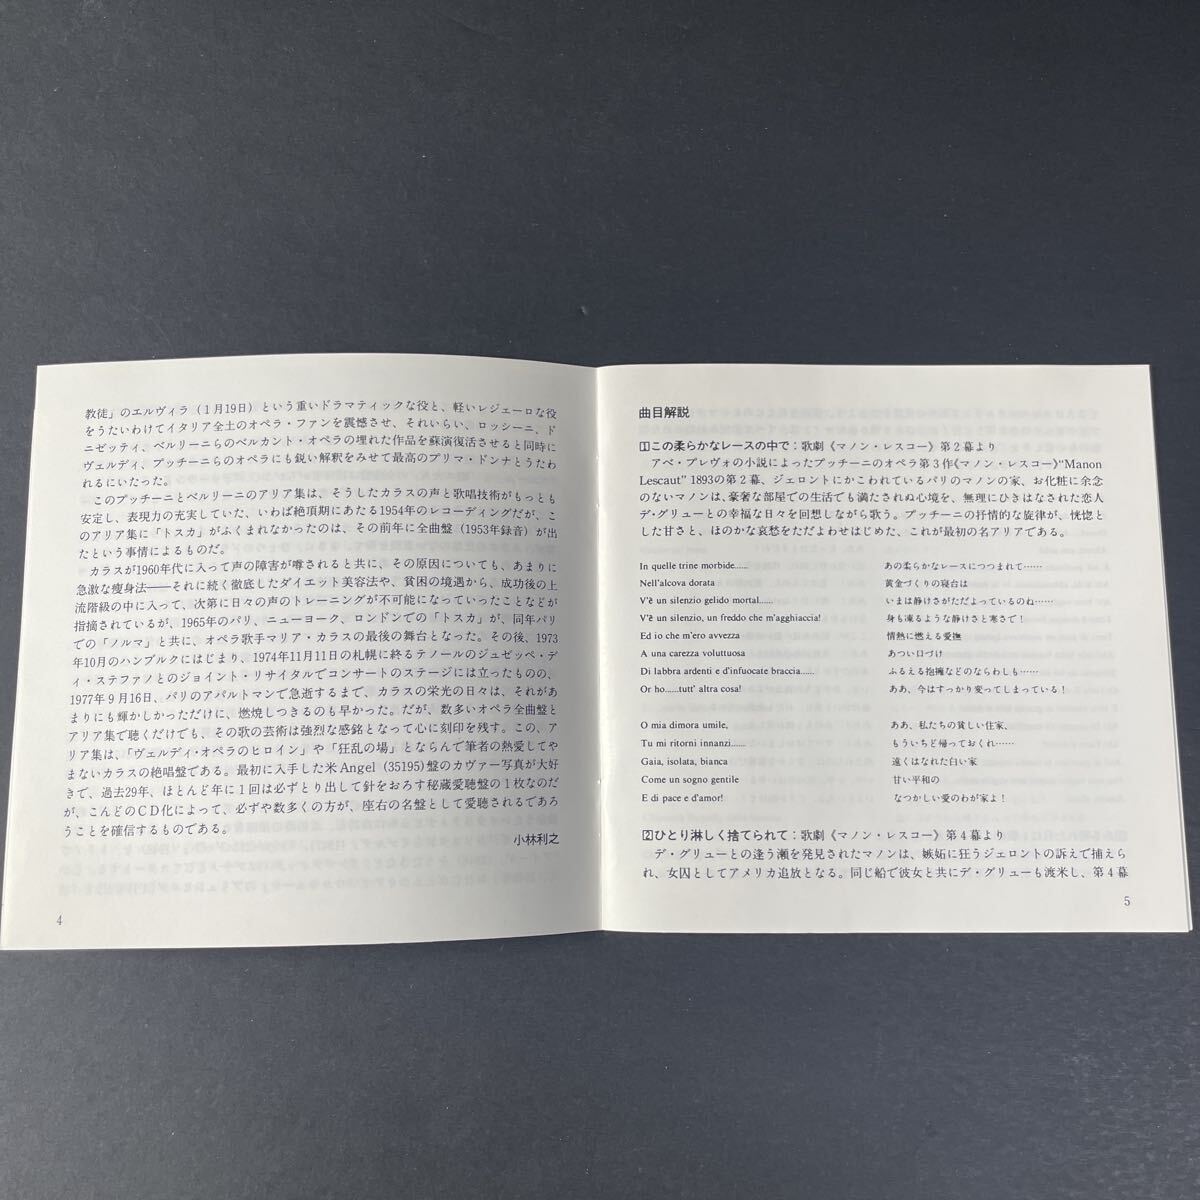 教徒」のエルヴィラ(1月19日)という重いドラマティックな役と、軽いレジェーロな役
をうたいわけてイタリア全土のオペラ・ファンを震憾させ、それいらい、ロッシーニ、ド
ニゼッティ、ベルリーニらのベルカント・オペラの埋れた作品を蘇演復活させると同時に
ヴェルディ、プッチーニらのオペラにも鋭い解釈をみせて最高のプリマ・ドンナとうたわ
れるにいたった。
このプッチーニとベルリーニのアリア集は、そうしたカラスの声と歌唱技術がもっとも
安定し、表現力の充実していた、いわば絶頂期にあたる1954年のレコーディングだが、こ
のアリア集に「トスカ」がふくまれなかったのは、その前年に全曲盤(1953年録音)が出
たという事情によるものだ。
カラスが1960年代に入って声の障害が噂されると共に、その原因についても、あまりに
急激な瘦身法――それに続く徹底したダイエット美容法や、貧困の境遇から、成功後の上
流階級の中に入って、次第に日々の声のトレーニングが不可能になっていったことなどが
指摘されているが、1965年のパリ、ニューヨーク、ロンドンでの「トスカ」が、同年パリ
での「ノルマ」と共に、オペラ歌手マリア・カラスの最後の舞台となった。その後、1973
年10月のハンブルクにはじまり、1974年11月11日の札幌に終るテノールのジュゼッペ・デ
ィ・ステファノとのジョイント・リサイタルでコンサートのステージには立ったものの、
1977年9月16日、パリのアパルトマンで急逝するまで、カラスの栄光の日々は、それがあ
まりにも輝かしかっただけに、燃焼しつきるのも早かった。だが、数多いオペラ全曲盤と
アリア集で聴くだけでも、その歌の芸術は強烈な感銘となって心に刻印を残す。この、ア
リア集は、「ヴェルディ・オペラのヒロイン」や「狂乱の場」とならんで筆者の熱愛してや
まないカラスの絶唱盤である。最初に入手した米Angel(35195)盤のカヴァー写真が大好
きで、過去29年、ほとんど年に1回は必ずとり出して針をおろす秘蔵愛聴盤の1枚なのだ
が、こんどのCD化によって、必ずや数多くの方が、座右の名盤として愛聴されるであろ
うことを確信するものである。
小林利之
4
曲目解説
1この柔らかなレースの中で:歌劇《マノン・レスコー》第2幕より
アベ・プレヴォの小説によったプッチーニのオペラ第3作《マノン・レスコー》“Manon
Lescaut” 1893の第2幕、ジェロントにかこわれているパリのマノンの家、お化粧に余念
のないマノンは、豪奢な部屋での生活でも満たされぬ心境を、無理にひきはなされた恋人
デ・グリューとの幸福な日々を回想しながら歌う。プッチーニの抒情的な旋律が、恍惚と
した甘さと、ほのかな哀愁をただよわせはじめた、これが最初の名アリアである。
In quelle trine morbide...... あの柔らかなレースにつつまれて……
Nell'alcova dorata 黄金づくりの寝台は
V'è un silenzio gelido mortal...... いまは静けさがただよっているのね……
V'è un silenzio, un freddo che m'agghiaccia! 身も凍るような静けさと寒さで!
Ed io che m'ero avvezza 情熱に燃える愛撫
A una carezza voluttuosa あつい口づけ
Di labbra ardenti e d'infuocate braccia...... ふるえる抱擁などのならわしも……
Or ho......tutt' altra cosa! ああ、今はすっかり変ってしまっている!
O mia dimora umile, ああ、私たちの貧しい住家、
Tu mi ritorni innanzi...... もういちど帰っておくれ……
Gaia, isolata, bianca 遠くはなれた白い家
Come un sogno gentile 甘い平和の
E di pace e d'amor! なつかしい愛のわが家よ!
2ひとり淋しく捨てられて:歌劇《マノン・レスコー》第4幕より
デ・グリューとの逢う瀬を発見されたマノンは、嫉妬に狂うジェロントの訴えで捕えら
れ、女囚としてアメリカ追放となる。同じ船で彼女と共にデ・グリューも渡米し、第4幕
5